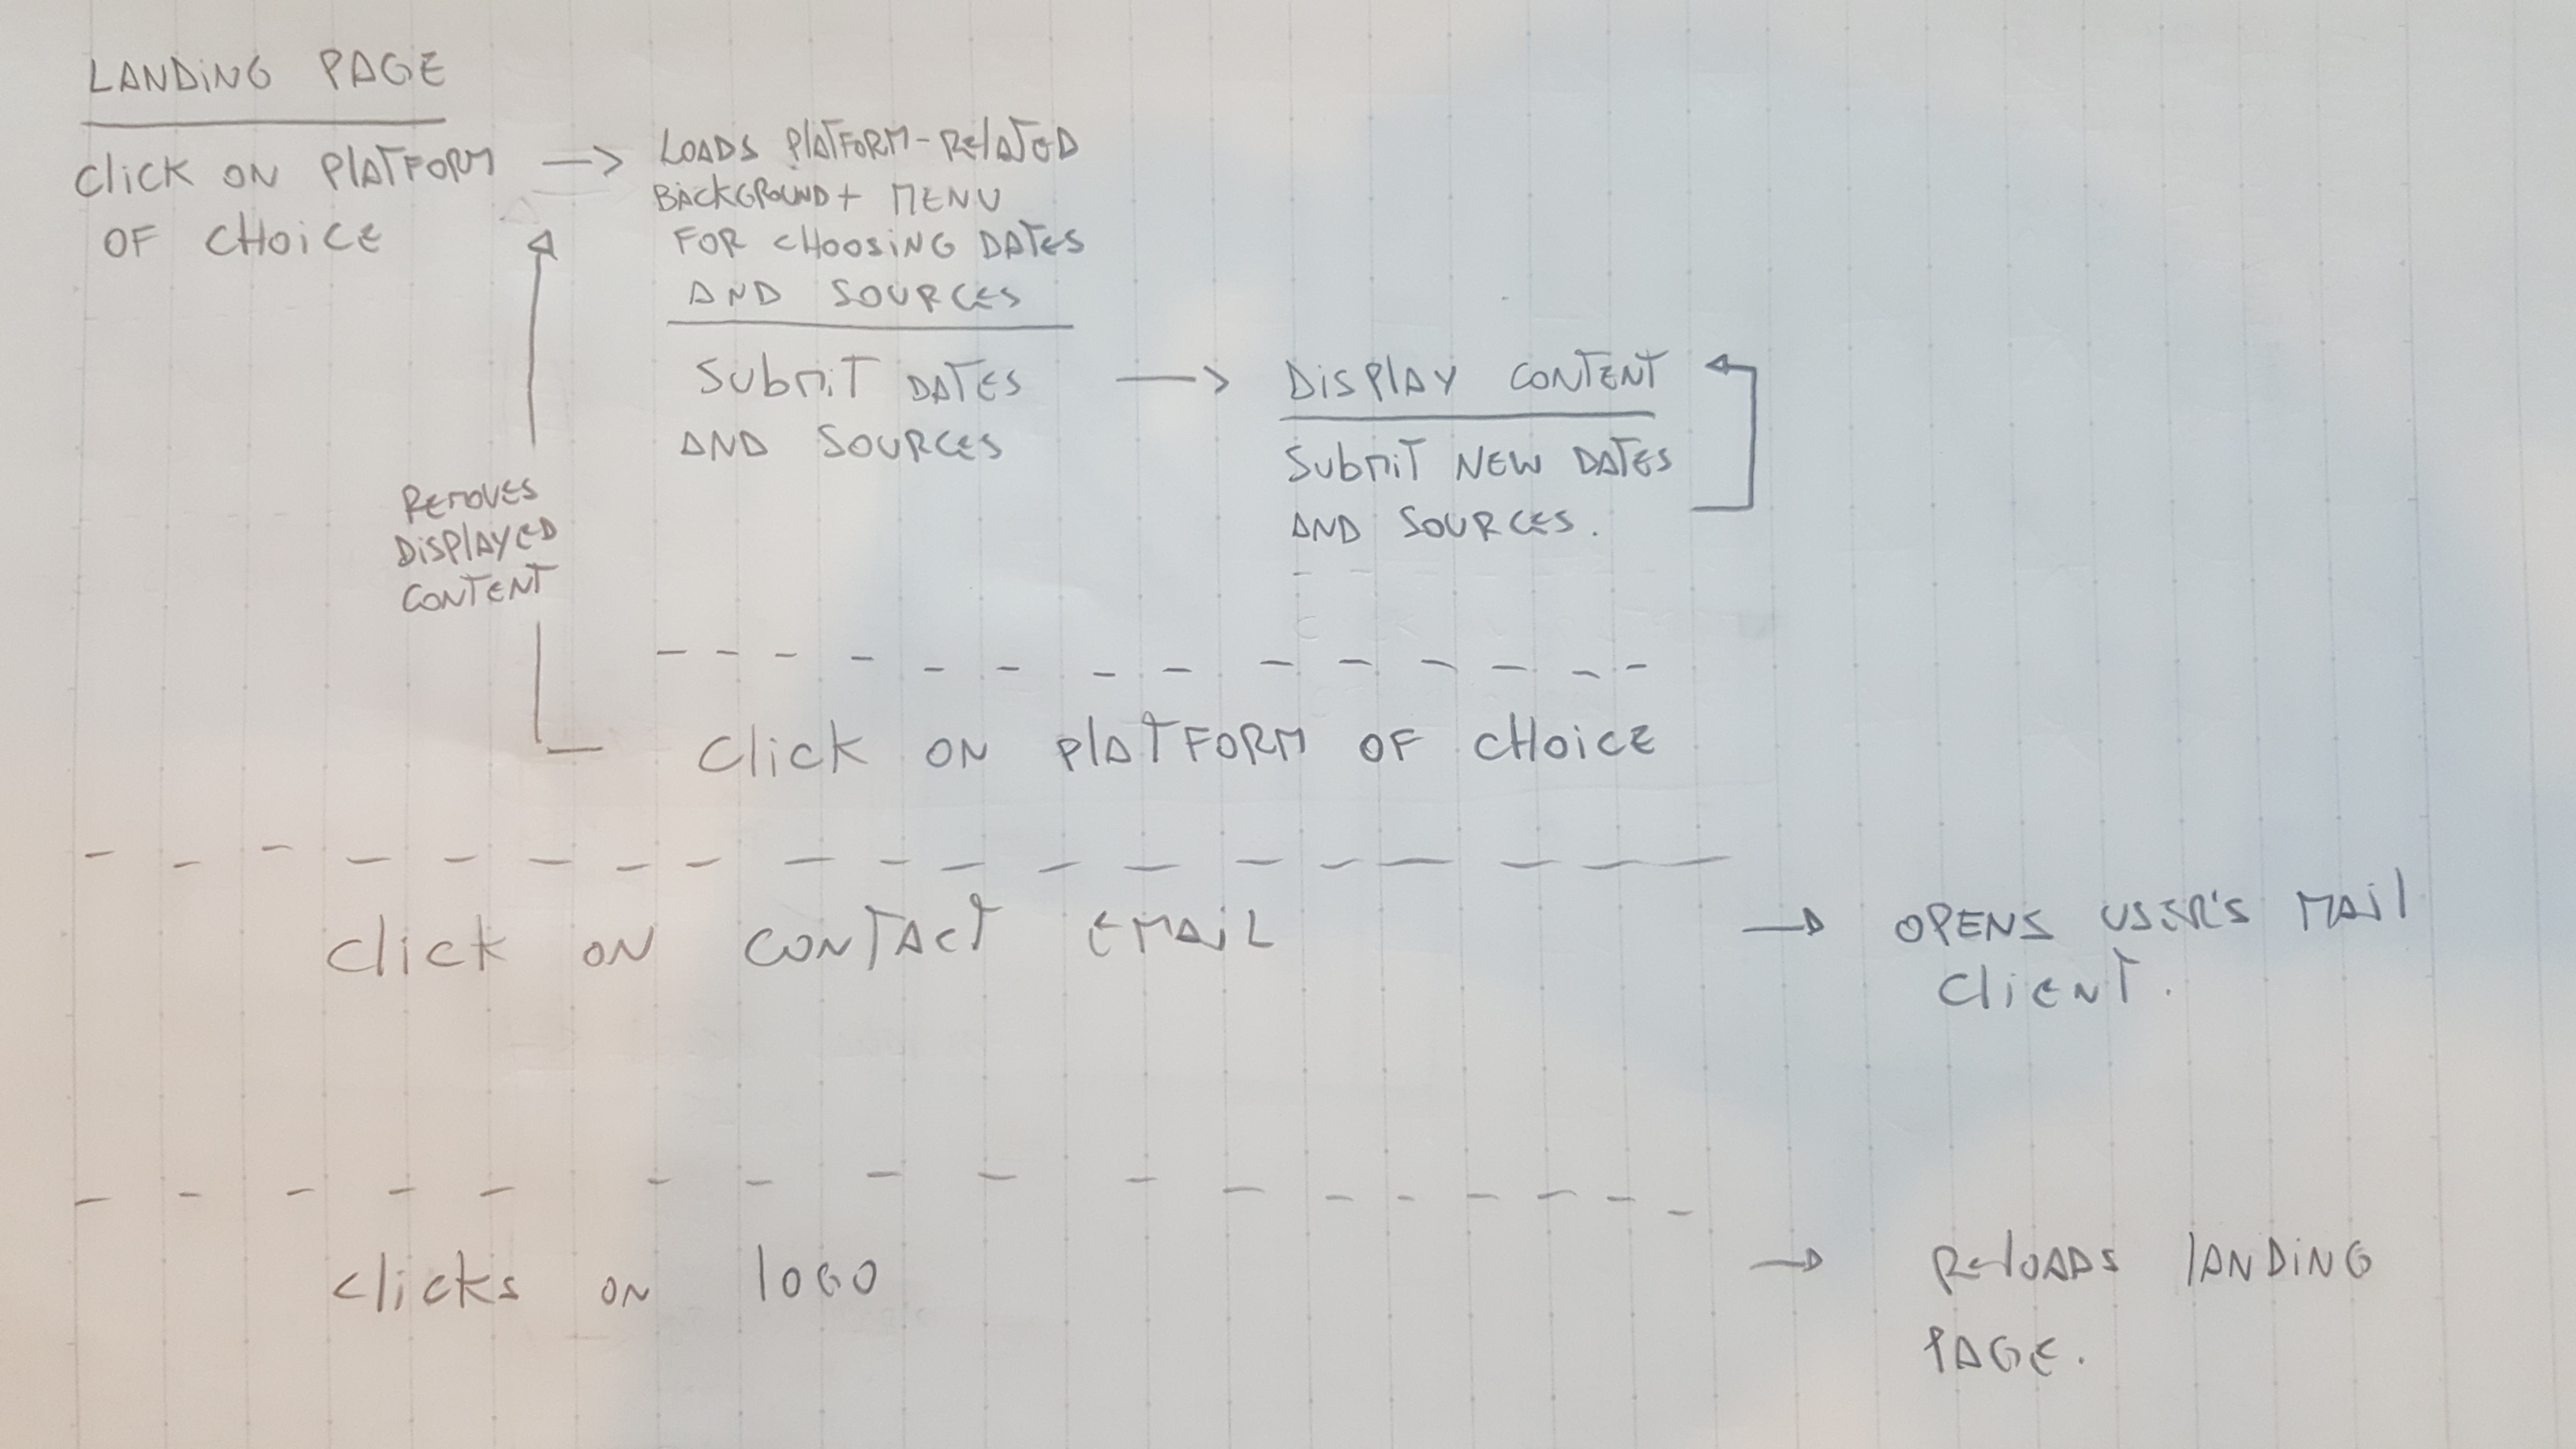 LANDING PAGE
Click ON PLATFORM
OF CHOICE
LOADS PLATFORM-RELATED
BACKGROUND + MENU
FOR CHOOSING DATES
AND SOURCES
Submit DATES
AND SOURCES
DISPLAY CONTENT
Submit NEW DATES
AND SOURCES.
REMOVES
DISPLAYED
CONTENT
Click ON PLATFORM OF CHOICE
Click ON CONTACT EMAIL
OPENS USER'S MAIL
Client.
clicks ON logo
Reloads LANDING
PAGE.